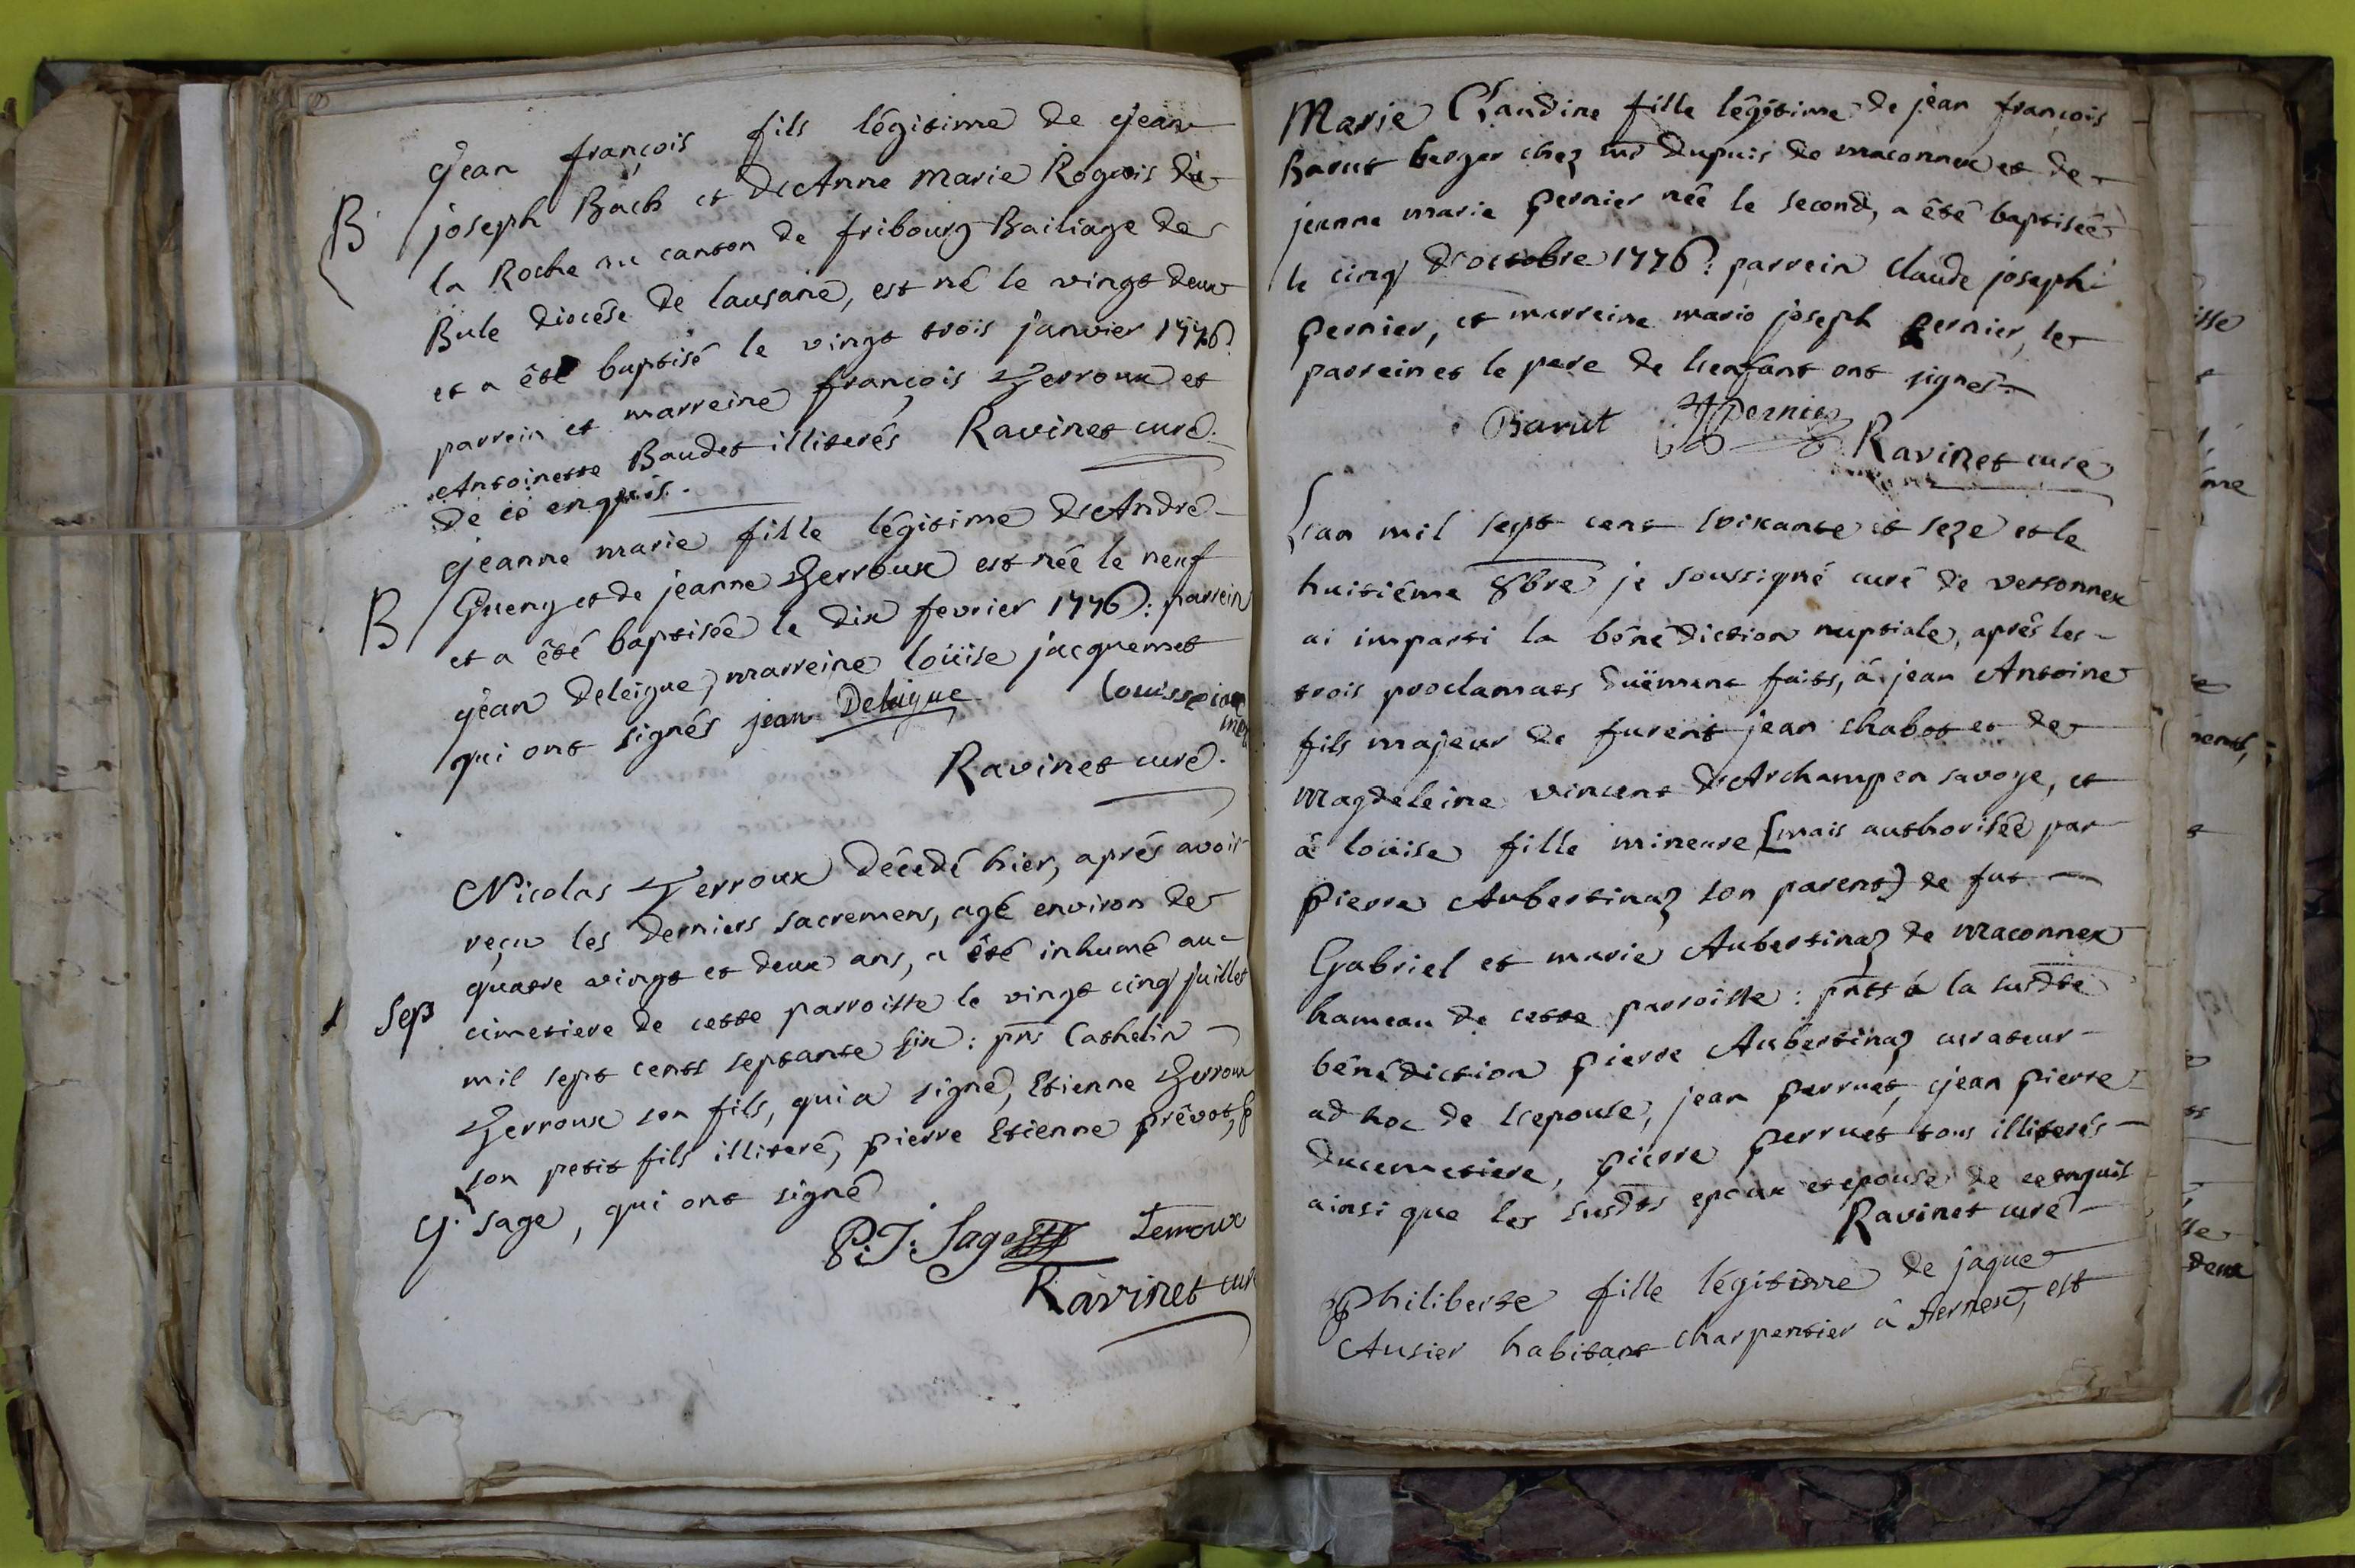 Jean françois fils légitime de jean
B joseph Bach et d'Anne marie Roguis de
la Roche au canton de fribourg Bailiage de
Bule diocése de lausane, est né le vingt deux
et a été baptisé le vingt trois janvier 1776:
parrein et marreine françois Terroux et
Antoinette Baudet illiterés Ravinet curé.
de ce enquis.
Jeanne marie fille légitime d'André
B Gueny et de jeanne Terroux est née le neuf
et a été baptisée le dix fevrier 1776: parrein
jean deleigue, marreine loüise jacquemet
qui ont signés jean Deleigue
Ravinet curé.
Nicolas Terroux décedé hier, aprés avoir
reçu les derniers sacremens, agé environ de
quatre vingt et deux ans, a été inhumé au
Sep cimetiere de cette parroisse le vingt cinq juillet
mil sept cents septante six: pns Cathelin
Terroux son fils, qui a signé, Etienne Terroux
son petit fils illiteré, pierre Etienne prévot, &
sage, qui ont signé
P: J: Sage Terroux
Ravinet cur
Marie Claudine fille légitime de jean françois
Barut berger chez mr dupuis de maconnex et de
jeanne marie pernier née le second, a été baptisée
le cinq d'octobre 1776: parrein claude joseph
pernier, et marreine marie joseph pernier, le
parrein et le pere de l'enfant ont signés
Barut pernier
Ravinet curé
L'an mil sept cent soixante et seze et le
huitiéme 8bre je soussigné curé de versonnex
ai imparti la bénédiction nuptiale, aprés les
trois proclamats duëment faits, á jean Antoine
fils majeur de furent jean chabot et de
magdeleine vincent d'Archamp en savoye, et
à loüise fille mineure [mais authorisée par
pierre Aubertinaz son parent) de fut
Gabriel et marie Aubertinaz de maconnex
hameau de cette parroisse: pnts à la susdte
bénédiction pierre Aubertinaz curateur
ad hoc de l'epouse, jean perruet, jean pierre
ducemetiere, pierre perruet tous illiterés
ainsi que les susdts epoux et epouse de ce enquis
Ravinet curé
philiberte fille légitime de jaque
Ausier habitant charpentier à fernex, est